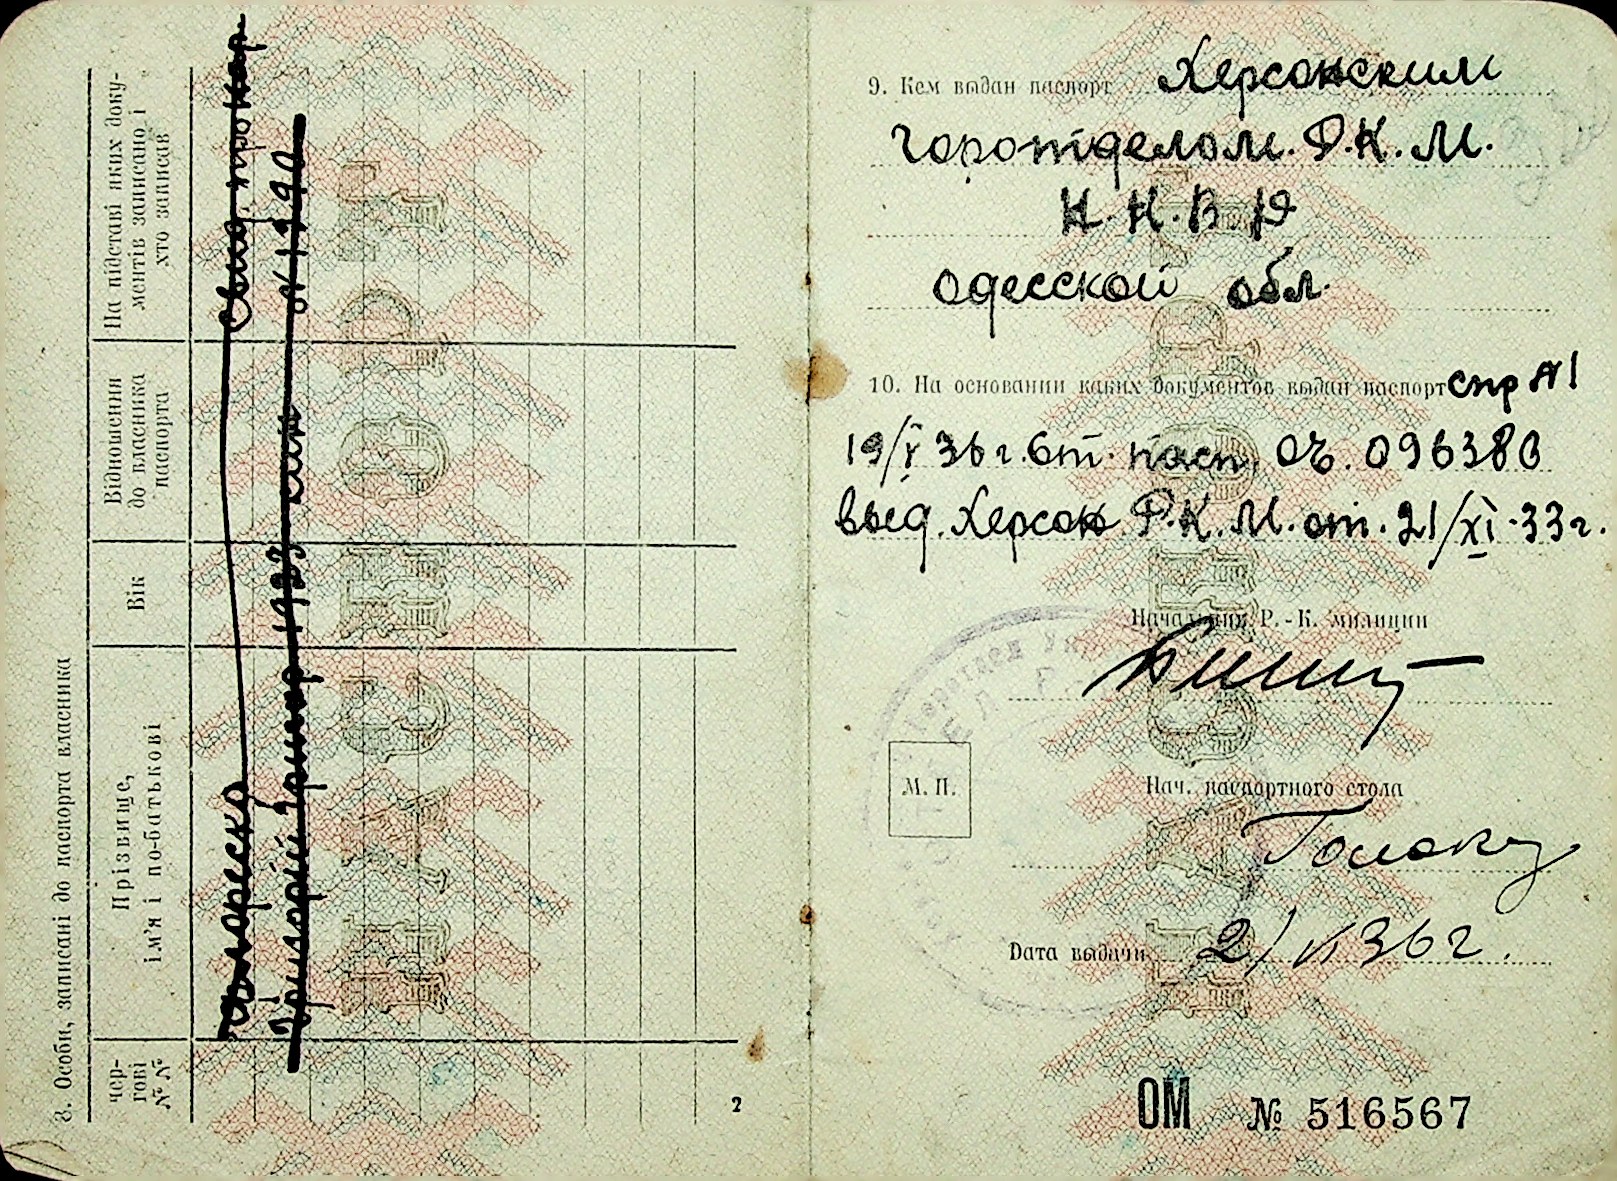 8. Особи, записані до паспорта власника
чер-
гові
№ №
Прізвище,
ім'я і по-батькові
Вік
Відношення
до власника
паспорта
На підставі яких доку-
ментів записано і
хто записав
Григорій 1923
№ 1990
2
9. Кем выдан паспорт Херсонским
горотделом. Р.К.М.
Н.К.В.Д
Одесской обл.
10. На основании каких документов выдан паспорт спр №1
19/V 36 г. от. пасп. ОЬ. 096380
выд. Херсон Р.К.М. от. 21/XI-33 г.
Начальник Р.-К. милиции
М. П.
Нач. паспортного стола
Дата выдачи 2/VI 36 г.
ОМ № 516567